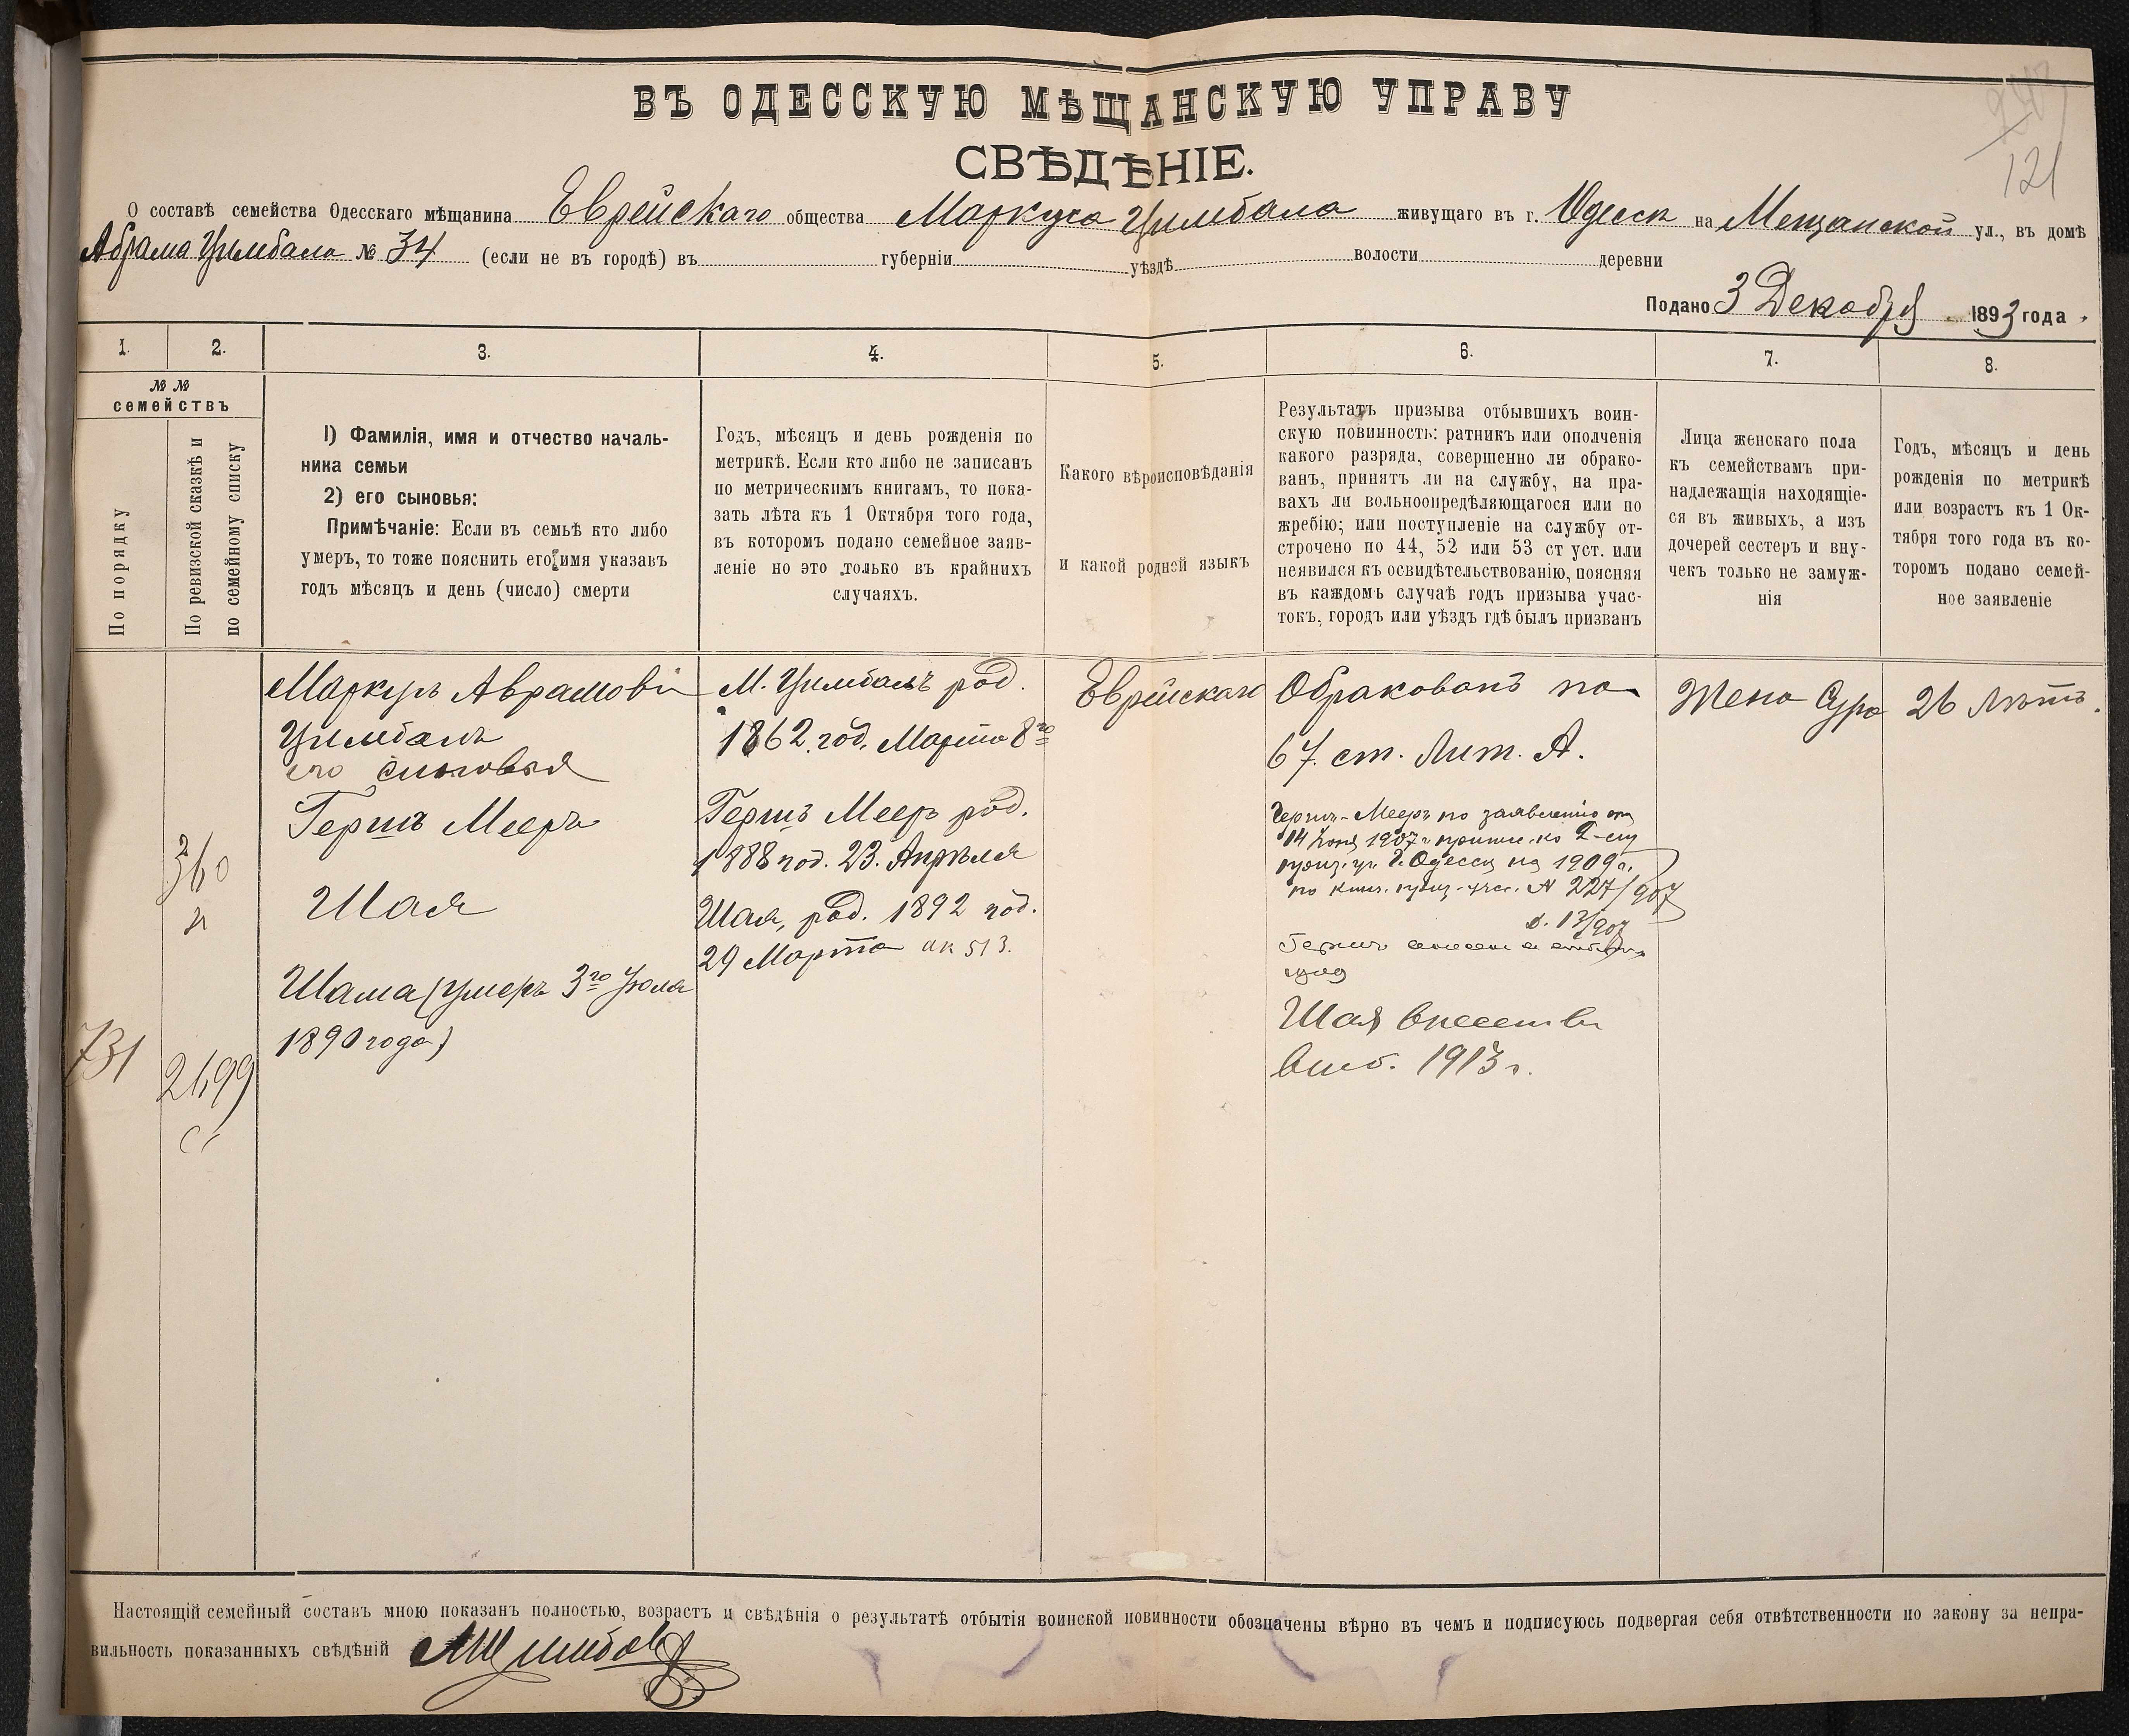 ВЪ ОДЕССКУЮ МѢЩАНСКУЮ УПРАВУ
СВѢДѢНІЕ.
121
О составѣ семейства Одесскаго мѣщанина Еврейскаго общества Маркуса Цимбала живущаго въ г. Одесск на Мещанской ул., въ домѣ
Абрама Цимбала № 34 (если не въ городѣ) въ губерніи уѣздѣ волости деревни
Подано 3 Декабря 1893 года
1. 2. 3. 4. 5. 6. 7. 8.
№ №
семействъ
По порядку
По ревизской сказкѣ и
по семейному списку
1) Фамилія, имя и отчество началь-
ника семьи
2) его сыновья:
Примѣчаніе: Если въ семьѣ кто либо
умеръ, то тоже пояснить его имя указавъ
годъ мѣсяцъ и день (число) смерти
Годъ, мѣсяцъ и день рожденія по
метрикѣ. Если кто либо не записанъ
по метрическимъ книгамъ, то пока-
зать лѣта къ 1 Октября того года,
въ которомъ подано семейное заяв-
леніе но это только въ крайнихъ
случаяхъ.
Какого вѣроисповѣданія
и какой родной языкъ
Результатъ призыва отбывшихъ воин-
скую повинность: ратникъ или ополченія
какого разряда, совершенно ли обрако-
ванъ, принятъ ли на службу, на пра-
вахъ ли вольноопредѣляющагося или по
жребію; или поступленіе на службу от-
строчено по 44, 52 или 53 ст уст. или
неявился къ освидѣтельствованію, поясняя
въ каждомъ случаѣ годъ призыва учас-
токъ, городъ или уѣздъ гдѣ былъ призванъ
Лица женскаго пола
къ семействамъ при-
надлежащія находящіе-
ся въ живыхъ, а изъ
дочерей сестеръ и вну-
чекъ только не замуж-
нія
Годъ, мѣсяцъ и день
рожденія по метрикѣ
или возрастъ къ 1 Ок-
тября того года въ ко-
торомъ подано семей-
ное заявленіе
731
360
2699
Маркусъ Аврамови
Цимбалъ
его сыновья
Гершъ Мееръ
Шая
Шама (умеръ 3го Іюля
1890 года)
М. Цимбалъ род.
1862. год. Марта 8го
Гершъ Меер род.
1888 год. 23. Апрѣля
Шая, род. 1892 год.
29 Марта ак 513.
Еврейскаго
Обракованъ по
67. ст. Лит. А.
Гершъ-Мееръ по заявленію от
14 1907 г. припис. ко 2-му
приз. уч. г. Одессы на 1909 г.
приз. уч. № 227/907
д. 13/907
Гершъ
Шая внесенъ въ
1913 г.
Жена Сура
26 лѣтъ.
Настоящій семейный составъ мною показанъ полностью, возрастъ и свѣдѣнія о результатѣ отбытія воинской повинности обозначены вѣрно въ чемъ и подписуюсь подвергая себя отвѣтственности по закону за непра-
вильность показанныхъ свѣдѣній МЦимбалъ